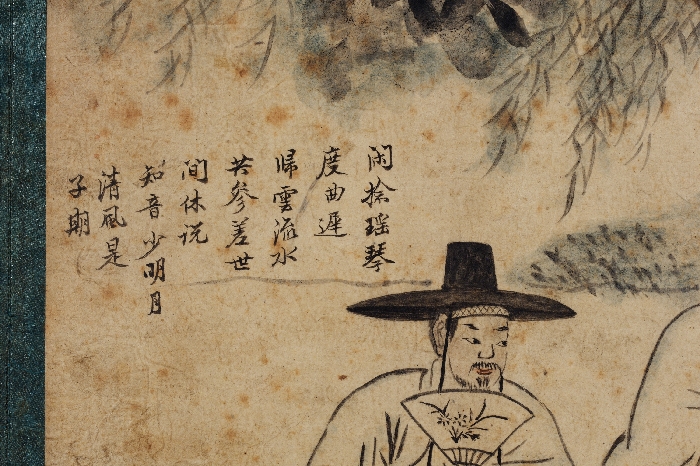 闲捻瑶琴
度曲遲
歸雲流水
共參差世
间休说
知音少明月
清風是
子期